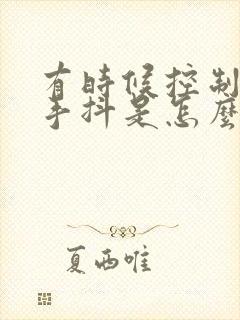 有時候控制
手抖是怎麼
夏西唯